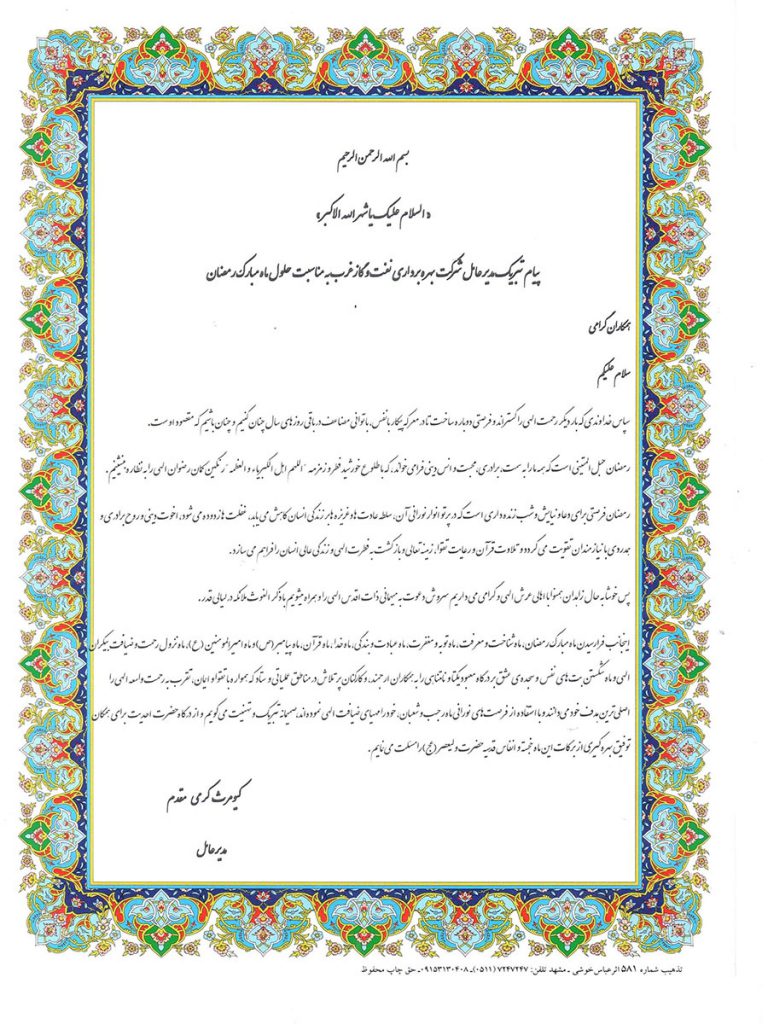 بسم الله الرحمن الرحیم
«السلام علیک یا شهر الله الاکبر»
پیام تبریک مدیرعامل شرکت بهره برداری نفت و گاز غرب به مناسبت حلول ماه مبارک رمضان
همکاران گرامی
سلام علیکم
سپاس خداوندی که بار دیگر رحمت الهی را گستراند و فرصتی دوباره ساخت تا در معرکه پیکار با نفس، با توانی مضاعف در باقی روزهای سال چنان کنیم و چنان باشیم که مقصود اوست.
رمضان حبل المتینی است که همه ما را به سمت، برادری، محبت و انس دینی فرامی خواند، که با طلوع خورشید فطر و زمزمه "اللهم اهل الکبریاء و العظمه" رنگین کمان رضوان الهی را به نظاره بنشینیم.
رمضان فرصتی برای دعا و نیایش و شب زنده داری است که در پرتو انوار نورانی آن، سلطه عادت ها و غریزه ها بر زندگی انسان کاهش می یابد، غفلت ها زدوده می شود، اخوت دینی و روح برادری و
همدردی با نیازمندان تقویت می گردد و تلاوت قرآن و رعایت تقوا، زمینه تعالی و بازگشت به فطرت الهی و زندگی عالی انسان را فراهم می سازد.
پس خوشا به حال زاهدان همنوا با اهالی عرش الهی و گرامی می داریم سروش دعوت به میهمانی ذات اقدس الهی را و همراه میشویم با ذکر الغوث ملائکه در لیالی قدر.
اینجانب فرا رسیدن ماه مبارک رمضان، ماه شناخت و معرفت، ماه توبه و مغفرت، ماه عبادت و بندگی، ماه خدا، ماه قرآن، ماه پیامبر(ص) و ماه امیرالمومنین (ع)، ماه نزول رحمت و ضیافت بیکران
الهی و ماه شکستن بت های نفس و سجده ی عشق بر درگاه معبود یکتا و نامتناهی را به همکاران ارجمند، و کارکنان پرتلاش در مناطق عملیاتی و ستاد که همواره با تقوا و ایمان، تقرب به رحمت واسعه الهی را
اصلی ترین هدف خود می دانند و با استفاده از فرصت های نورانی ماه رجب و شعبان، خود را مهیای ضیافت الهی نموده اند، صمیمانه تبریک و تهنیت می گویم و از درگاه حضرت احدیت برای همگان
توفیق بهره گیری از برکات این ماه خجسته و انفاس قدسیه حضرت ولیعصر (عج) را مسئلت می نمایم.
کیومرث کرمی مقدم
مدیرعامل
تذهیب شماره ۵۸۱ اثر عباس خوشی - مشهد تلفن: ۷۲۴۷۲۴۷ (۰۵۱۱) - ۰۹۱۵۳۱۳۰۴۰۸ - حق چاپ محفوظ